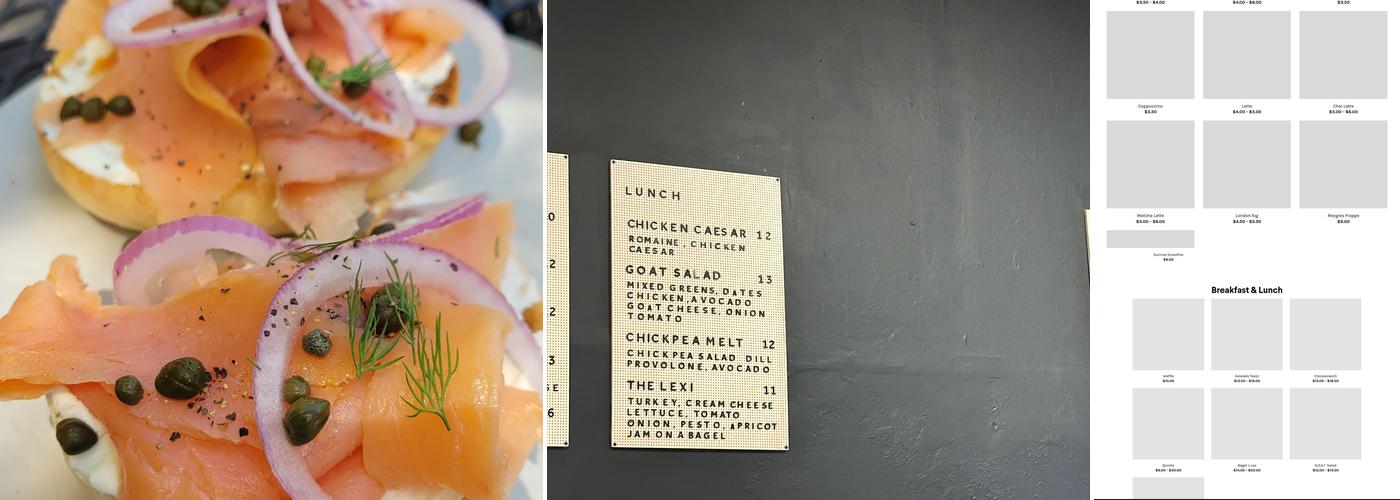 0
2
2
3
SE
6
LUNCH
CHICKEN CAESAR 12
ROMAINE, CHICKEN
CAESAR
GOAT SALAD 13
MIXED GREENS, DATES
CHICKEN, AVOCADO
GOAT CHEESE, ONION
TOMATO
CHICKPEA MELT 12
CHICKPEA SALAD DILL
PROVOLONE, AVOCADO
THE LEXI 11
TURKEY, CREAM CHEESE
LETTUCE, TOMATO
ONION, PESTO, APRICOT
JAM ON A BAGEL
$3.50 - $4.00 $4.00 - $6.00 $3.50
Cappuccino Latte Chai Latte
$3.50 $4.00 - $5.00 $5.00 - $6.00
Matcha Latte London fog Margies Frappe
$5.00 - $6.00 $4.50 - $5.50 $9.00
Sunrise Smoothie
$8.00
Breakfast & Lunch
Waffle Avocado Toast Croissanwich
$10.00 $13.00 - $16.00 $13.00 - $18.00
Quiche Bagel + Lox G.O.A.T. Salad
$6.00 - $30.00 $14.00 - $20.00 $12.00 - $15.00